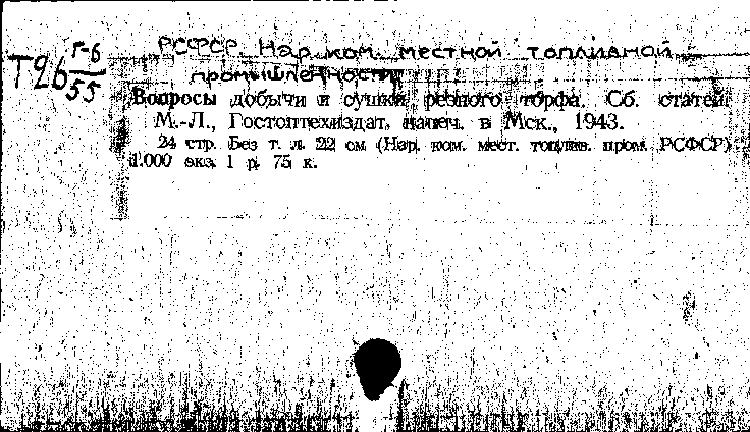 РСФСР. Нар. ком. местной топливной
промышленности
Т96 г-6
55
Вопросы добычи и сушки резного торфа. Сб. статей.
М.-Л., Гостоптехиздат, напеч. в Мск., 1943.
24 стр. Без т. л. 22 см (Нар. ком. мест. топлив. пром. РСФСР)
1.000 экз. 1 р. 75 к.